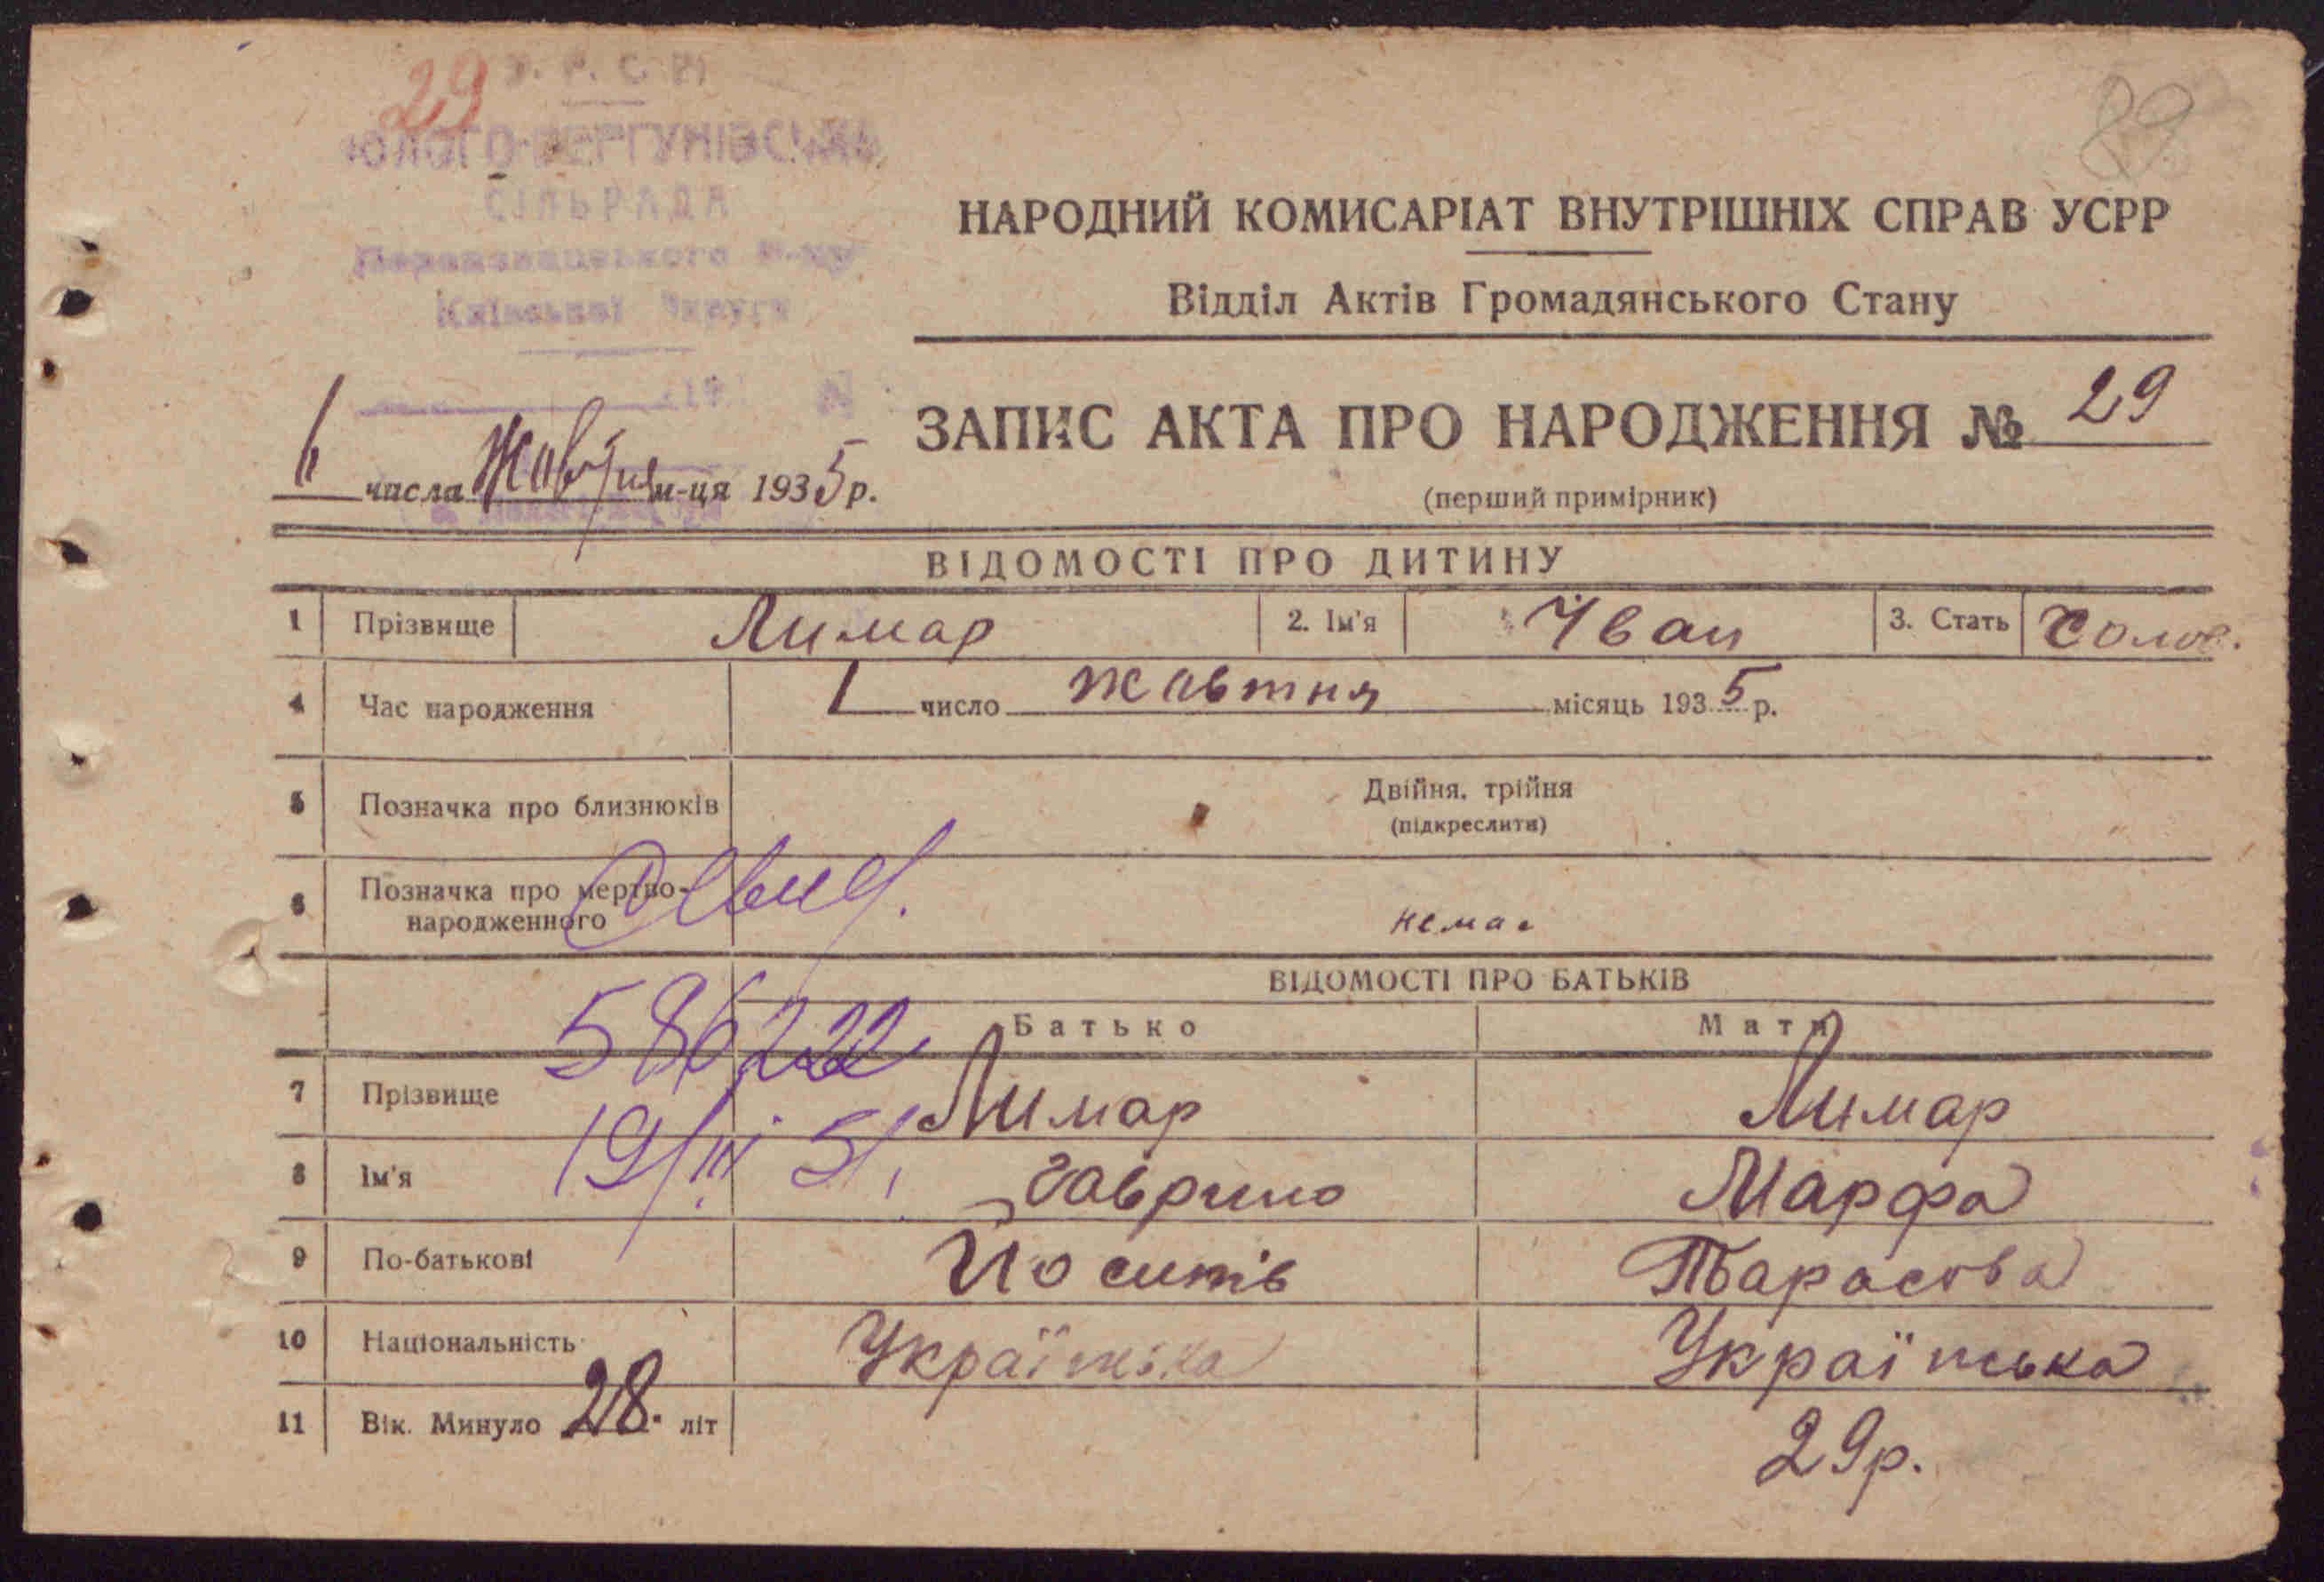 29 У. Р. С. Р.
89
СІЛЬРАДА
НАРОДНИЙ КОМИСАРІАТ ВНУТРІШНІХ СПРАВ УСРР
Відділ Актів Громадянського Стану
ЗАПИС АКТА ПРО НАРОДЖЕННЯ № 29
(перший примірник)
числа Жовтня м-ця 1935 р.
ВІДОМОСТІ ПРО ДИТИНУ
1 Прізвище Лимар 2. Ім'я Іван 3. Стать чолов.
4 Час народження 1 число жовтня місяць 1935 р.
5 Позначка про близнюків Двійня, трійня
(підкреслити)
6 Позначка про мертво-
народженного немає
ВІДОМОСТІ ПРО БАТЬКІВ
586222
Батько Мати
7 Прізвище Лимар Лимар
19/III 51
8 Ім'я Гаврило Марфа
9 По-батькові Йосипів Тарасова
10 Національність Українська Українська
11 Вік. Минуло 28. літ 29р.